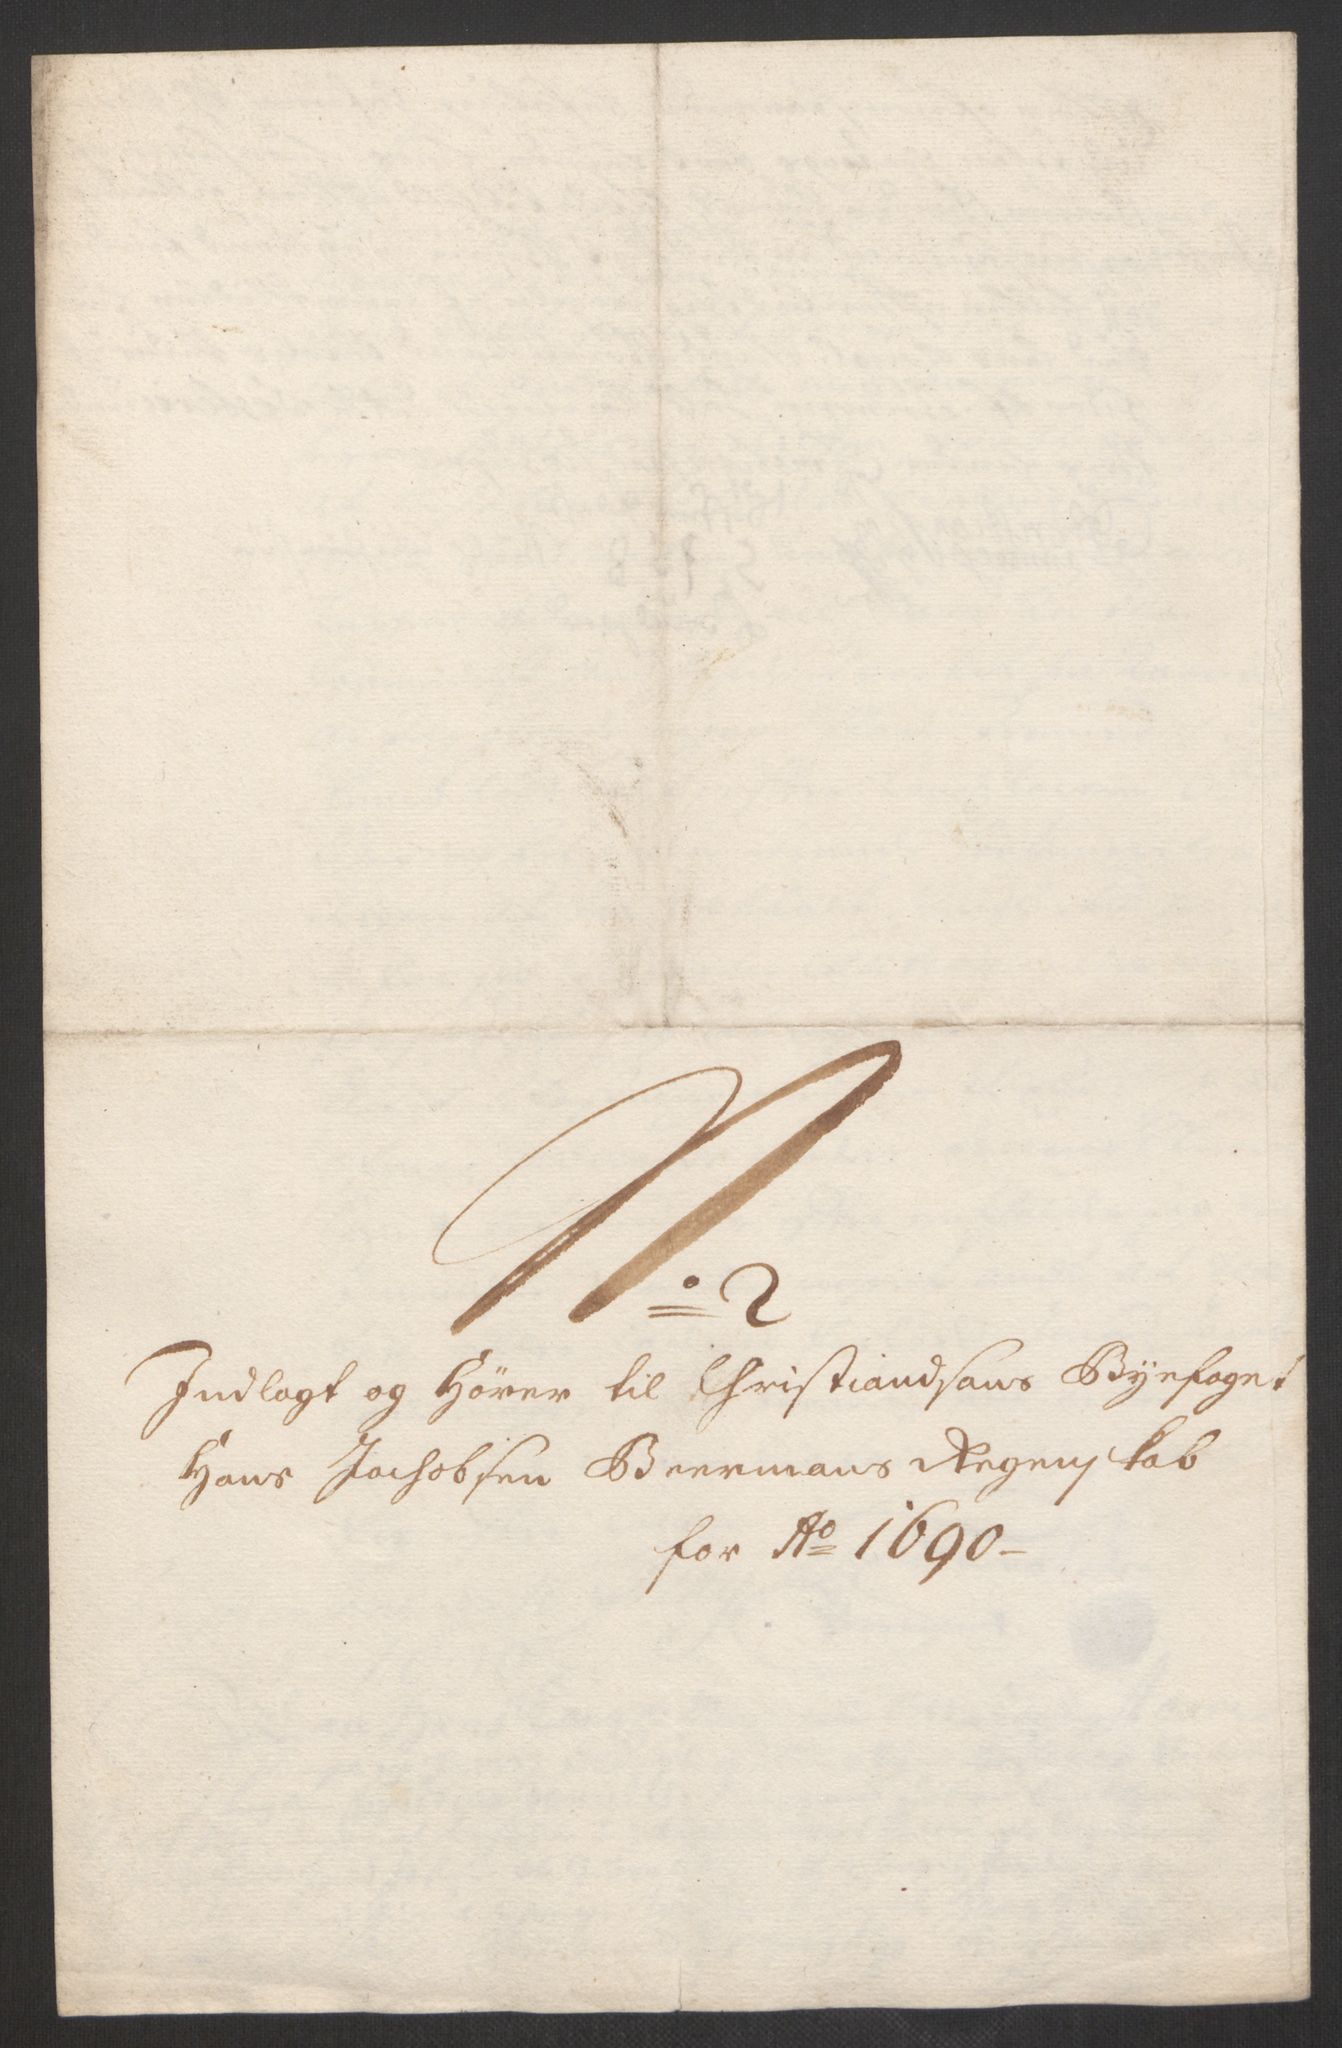 N.o 2
Indlagt og Hörer til Christiandsans Byefoget
Hans Jachobsen Beermans Regenskab
for Ao 1690-